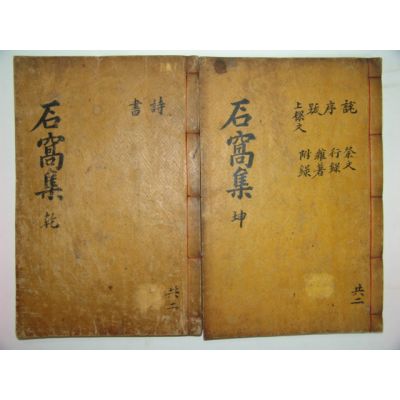 石窩集 乾
詩
書
共二
石窩集 坤
序
跋
上樑文
祭文
行錄
雜著
附錄
共二